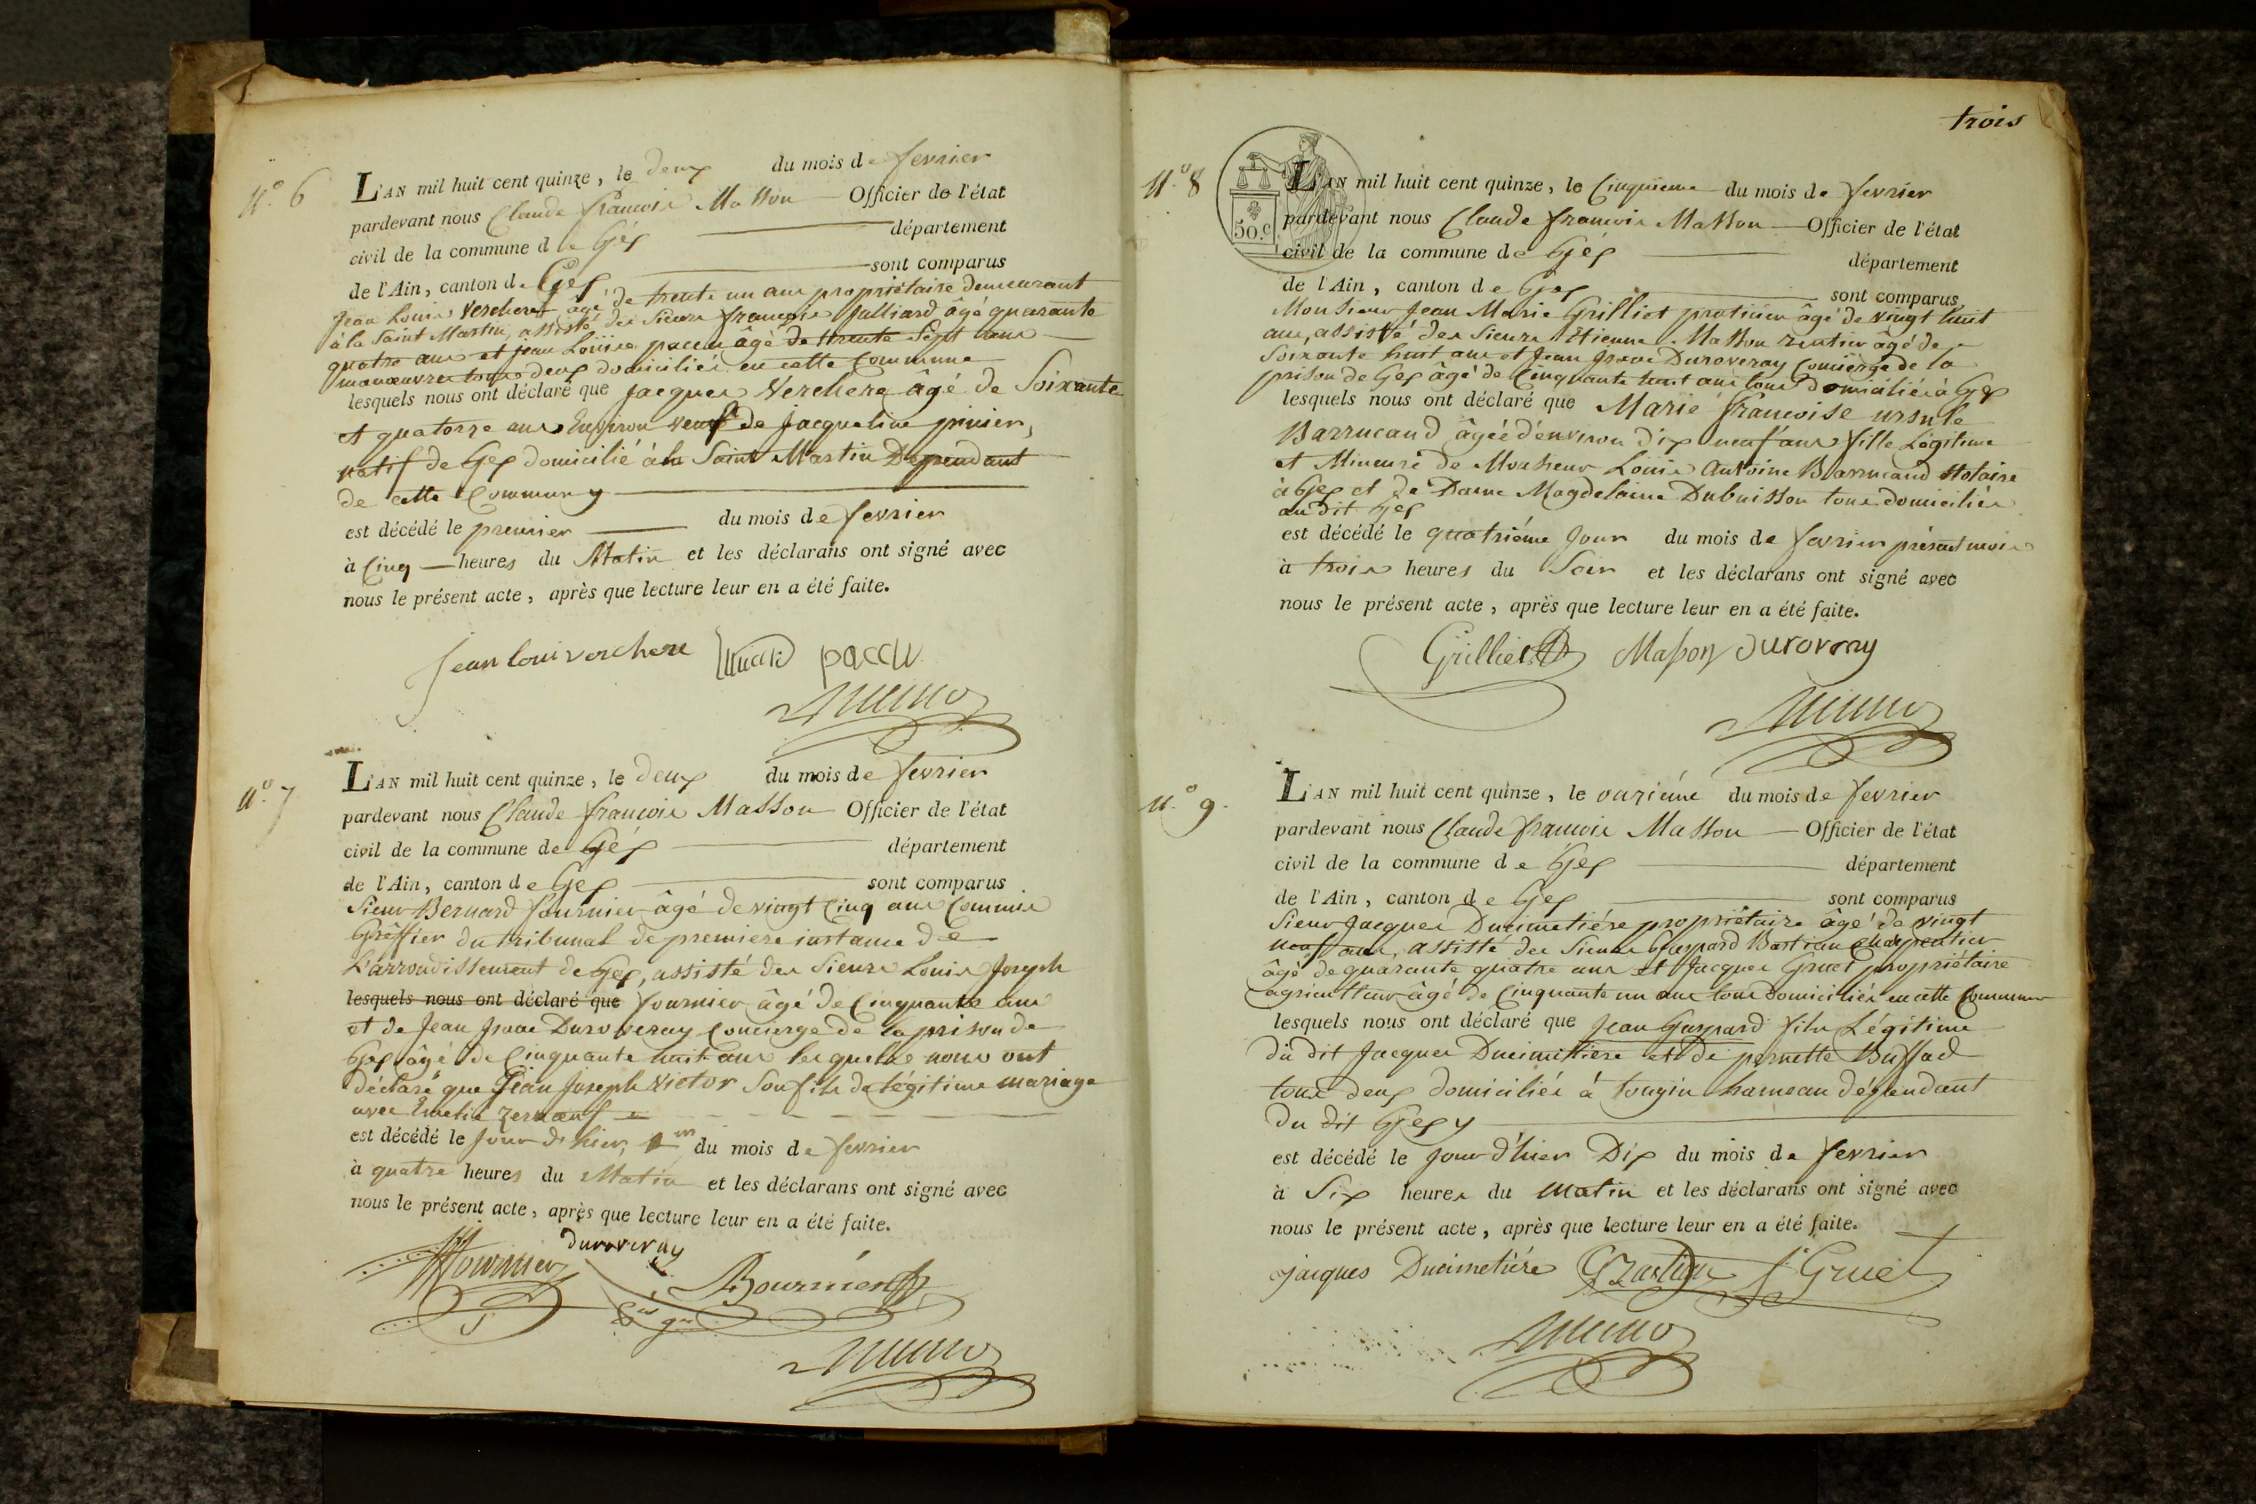 N.o 6
L'AN mil huit cent quinze, le deux du mois de fevrier
pardevant nous Claude françois Masson Officier de l'état
civil de la commune de Géx département
de l'Ain, canton de Gex sont comparus
Jean Louis Verchere âgé de trente un ans propriétaire demeurant
à la Saint Martin, assisté des Sieurs françois Julliard âgé quarante
quatre ans et jean Louise paccu âgé de trente Sept ans
manœuvres tous deux domiciliés en cette Commune
lesquels nous ont déclaré que jacques Verchere âgé de Soixante
et quatorze ans Environ veuf de Jacqueline
natif de Gex domicilié à la Saint Martin Dependant
de cette Commune
est décédé le premier du mois de fevrier
à Cinq heures du Matin et les déclarans ont signé avec
nous le présent acte, après que lecture leur en a été faite.
jean loui verchere paccu
N.o 7
L'AN mil huit cent quinze, le deux du mois de fevrier
pardevant nous Claude françois Masson Officier de l'état
civil de la commune de Géx département
de l'Ain, canton de Gex sont comparus
Sieur Bernard fournier âgé de vingt Cinq ans Commis
Gréffier du tribunal de premiere instance de
L'arrondissement de Gex, assisté des Sieurs Louis Joseph
lesquels nous ont déclaré que fournier âgé de Cinquante ans
et de Jean Isaac Duroveray Concierge de la prison de
Gex âgé de Cinquante huit ans lesquels nous ont
déclaré que Jean Joseph Victor Son fils de légitime mariage
avec
est décédé le jour d'hier, 1er du mois de fevrier
à quatre heures du Matin et les déclarans ont signé avec
nous le présent acte, après que lecture leur en a été faite.
fournier duroveray
trois
N.o 8
50.c
L'AN mil huit cent quinze, le Cinquieme du mois de fevrier
pardevant nous Claude françois Masson Officier de l'état
civil de la commune de Géx département
de l'Ain, canton de Gex sont comparus
Monsieur Jean Marie Grilliet praticien âgé de vingt huit
ans, assisté des Sieurs Etienne Masson rentier âgé de
Soixante huit ans et Jean Isaac Duroveray Concierge de la
prison de Gex âgé de Cinquante huit ans tous domiciliés à Gex
lesquels nous ont déclaré que Marie françoise ursule
Barrucand âgée d'environ dix neuf ans fille Légitime
et Mineure de Monsieur Louis Antoine Barrucand Notaire
à Gex et de Dame Magdelaine Dubuisson tous domiciliés
au dit Gex
est décédé le quatriéme jour du mois de fevrier présent mois
à trois heures du Soir et les déclarans ont signé avec
nous le présent acte, après que lecture leur en a été faite.
Grilliet Masson duroveray
N.o 9.
L'AN mil huit cent quinze, le onziéme du mois de fevrier
pardevant nous Claude françois Masson Officier de l'état
civil de la commune de Gex département
de l'Ain, canton de Gex sont comparus
Sieur Jacques Ducimetiére propriétaire âgé de vingt
neuf ans, assisté des Sieurs Gaspard Bastian charpentier
âgé de quarante quatre ans et Jacques Gruet propriétaire
agriculteur âgé de Cinquante un ans tous domiciliés en cette Commune
lesquels nous ont déclaré que Jean Gaspard fils Légitime
du dit Jacques Ducimittiere et de pernette Buffad
tous deux domiciliés à tougin hameau dépendant
du dit Gex
est décédé le jour d'hier Dix du mois de fevrier
à Six heures du matin et les déclarans ont signé avec
nous le présent acte, après que lecture leur en a été faite.
jacques Ducimetiére G Bastian j Gruet